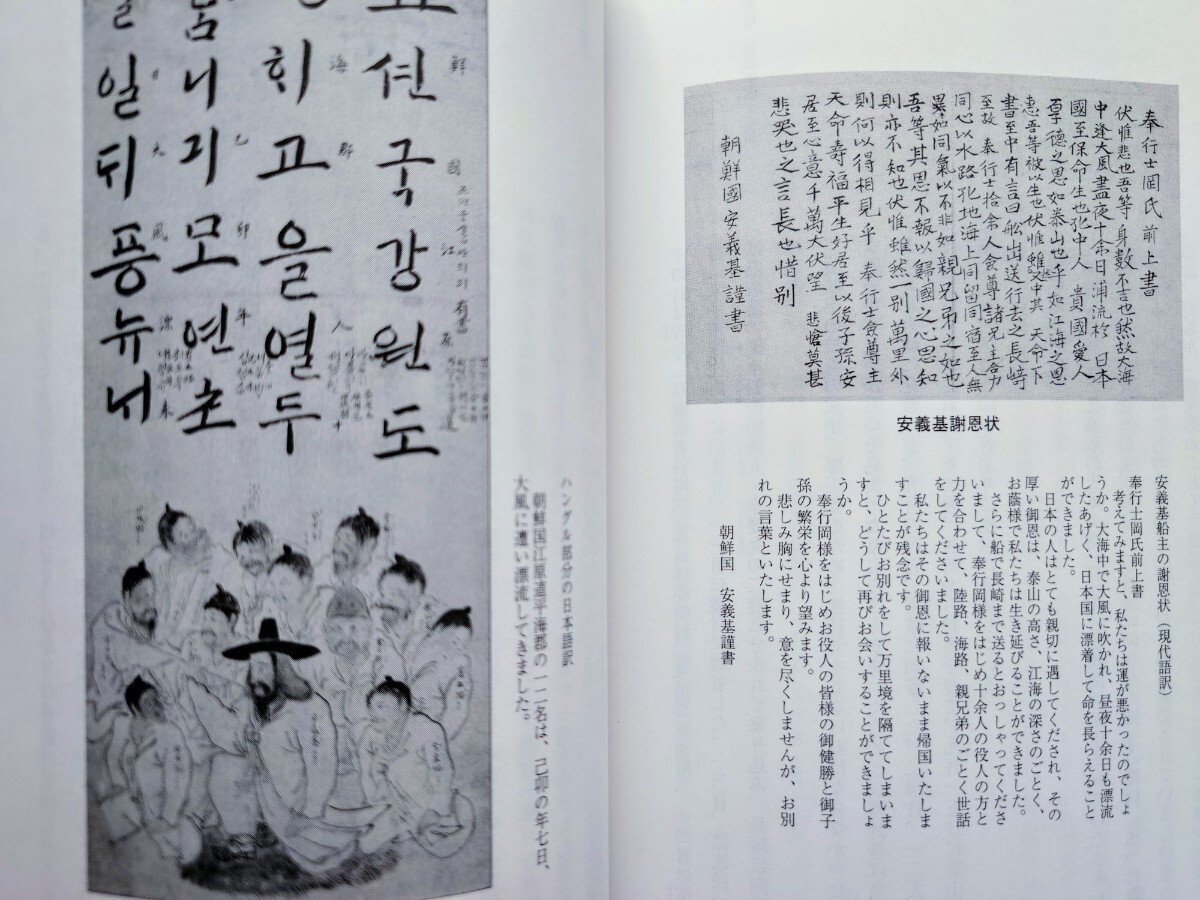 奉行士岡氏前上書
伏惟悲也吾等身數不吉也然故大海
中逢大風晝夜十余日浦流於日本
國至保命生也化中人貴國愛人
厚德之思如泰山也乎如江海之思
惠吾等被以生也伏惟雖 中其天命下
書至中有言曰舩出送行去之長崎
至故奉行士拾余人僉尊諸兄主合力
同心以水路化地海上同留同宿至人無
異如同氣以不非如親兄弟之如也
吾等其思不報以歸國之心思知
則亦不知也伏惟雖然一別萬里外
則何以得相見乎奉行士僉尊主
天命壽福平生好居至以後子孫安
居至心意千萬大伏望悲愴莫甚
悲哭也之言長也惜別
朝鮮國安義基謹書
安義基謝恩状
安義基船主の謝恩状(現代語訳)
奉行士岡氏前上書
考えてみますと、私たちは運が悪かったのでしょ
うか。大海中で大風に吹かれ、昼夜十余日も漂流
したあげく、日本国に漂着して命を長らえること
ができました。
日本の人はとても親切に遇してくだされ、その
厚い御恩は、泰山の高さ、江海の深さのごとく、
お蔭様で私たちは生き延びることができました。
さらに船で長崎まで送るとおっしゃってくださ
いまして、奉行岡様をはじめ十余人の役人の方と
力を合わせて、陸路、海路、親兄弟のごとく世話
をしてくださいました。
私たちはその御恩に報いないまま帰国いたしま
すことが残念です。
ひとたびお別れをして万里境を隔ててしまいま
すと、どうして再びお会いすることができましょ
うか。
奉行岡様をはじめお役人の皆様の御健勝と御子
孫の繁栄を心より望みます。
悲しみ胸にせまり、意を尽くしませんが、お別
れの言葉といたします。
朝鮮国 安義基謹書
션국강원도
鮮 國 江 原
희고을열두
海 郡 人 十
니긔모연초
己 卯 年
일듸풍뉴서
日 大 風 漂 来
ハングル部分の日本語訳
朝鮮国江原道平海郡の一二名は、己卯の年七日、
大風に遭い漂流してきました。